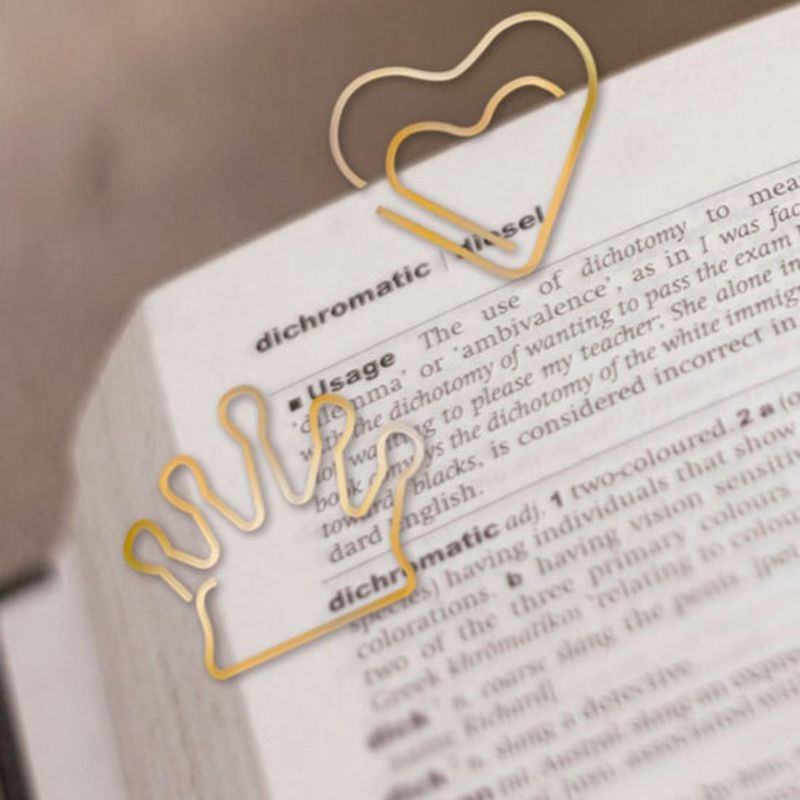 dichromatic | diesel
■ Usage The use of dichotomy to mea
'dilemma' or 'ambivalence', as in I was fac
with the dichotomy of wanting to pass the exam
wanting to please my teacher; She alone in
book conveys the dichotomy of the white immig
towards blacks, is considered incorrect in
dard English.
dichromatic adj. 1 two-coloured. 2 a (o
species) having individuals that show
colorations. b having vision sensitiv
two of the three primary colours.
Greek khrōmatikos 'relating to colou
n. coarse slang the penis. [pet
Richard]
dick n. slang a detective.